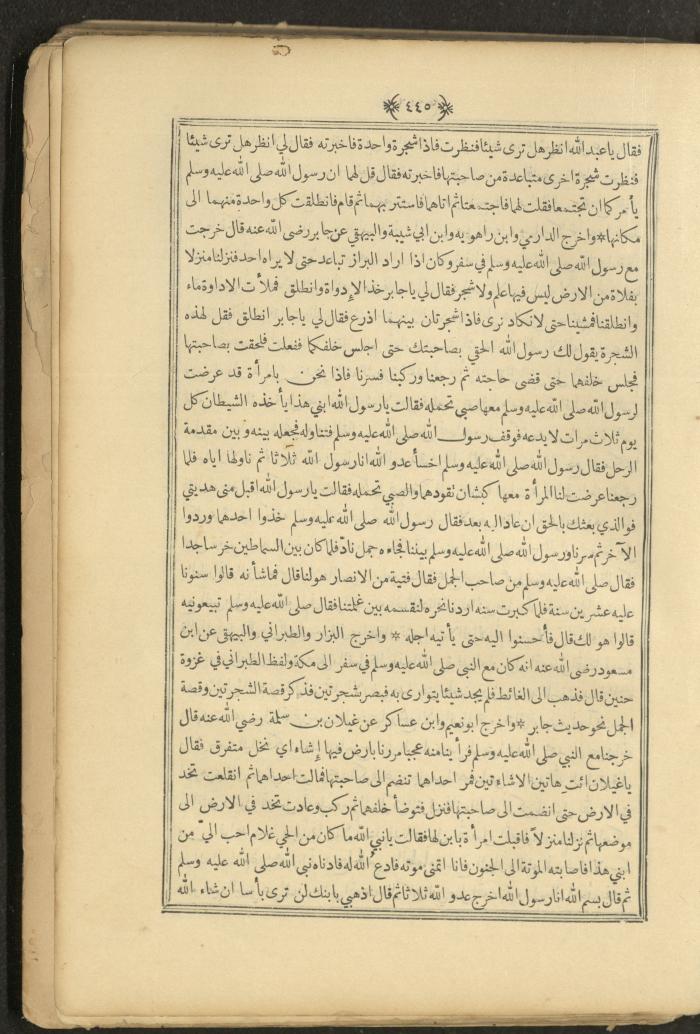 ٤٤٥
فقال ياعبدالله انظر هل ترى شيئا فنظرت فاذا شجرة واحدة فاخبرته فقال لي انظر هل ترى شيئا
فنظرت شجرة اخرى متباعدة من صاحبتها فاخبرته فقال قل لهما ان رسول الله صلى الله عليه وسلم
يأمركما ان تجتمعا فقلت لهما فاجتمعتا ثم اتاهما فاستتر بهما ثم قام فانطلقت كل واحدة منهما الى
مكانها * واخرج الدارمي وابن راهو به وابن ابي شيبة والبيهقي عن جابر رضى الله عنه قال خرجت
مع رسول الله صلى الله عليه وسلم في سفر وكان اذا اراد البراز تباعد حتى لا يراه احد فنزلنا منزلا
بفلاة من الارض ليس فيها علم ولا شجر فقال لي ياجابر خذ الإدواة وانطلق فملأت الاداوة ماء
وانطلقنا فمشينا حتى لانكاد نرى فاذا شجرتان بينهما اذرع فقال لي ياجابر انطلق فقل لهذه
الشجرة يقول لك رسول الله الحقي بصاحبتك حتى اجلس خلفكما ففعلت فلحقت بصاحبتها
فجلس خلفهما حتى قضى حاجته ثم رجعنا وركبنا فسرنا فاذا نحن بامرأة قد عرضت
لرسول الله صلى الله عليه وسلم معها صبي تحمله فقالت يارسول الله ابني هذا يأخذه الشيطان كل
يوم ثلاث مرات لا يدعه فوقف رسول الله صلى الله عليه وسلم فتناوله فجعله بينه و بين مقدمة
الرحل فقال رسول الله صلى الله عليه وسلم اخسأ عدو الله انا رسول الله ثلاثا ثم ناولها اياه فلما
رجعنا عرضت لنا المرأة معها كبشان تقودهما والصبي تحمله فقالت يارسول الله اقبل منى هديتي
فوالذي بعثك بالحق ان عاد اليه بعد فقال رسول الله صلى الله عليه وسلم خذوا احدهما وردوا
الآخر ثم سرنا ورسول الله صلى الله عليه وسلم بيننا فجاءه جمل نادّ فلما كان بين السماطين خر ساجدا
فقال صلى الله عليه وسلم من صاحب الجمل فقال فتية من الانصار هو لنا قال فما شأنه قالوا سنونا
عليه عشرين سنة فلما كبرت سنه اردنا نحره لنقسمه بين غلمتنا فقال صلى الله عليه وسلم تبيعونيه
قالوا هو لك قال فأحسنوا اليه حتى يأتيه اجله * واخرج البزار والطبراني والبيهقى عن ابن
مسعود رضى الله عنه انه كان مع النبي صلى الله عليه وسلم في سفر الى مكة ولفظ الطبراني في غزوة
حنين قال فذهب الى الغائط فلم يجد شيئا يتوارى به فبصر بشجرتين فذكر قصة الشجرتين وقصة
الجمل نحو حديث جابر * واخرج ابونعيم وابن عساكر عن غيلان بن سلمة رضي الله عنه قال
خرجنا مع النبي صلى الله عليه وسلم فرأينا منه عجبا مررنا بارض فيها إشاء اي نخل متفرق فقال
ياغيلان ائت هاتين الاشاءتين فمر احداهما تنضم الى صاحبتها فمالت احداهما ثم انقلعت تخد
في الارض حتى انضمت الى صاحبتها فنزل فتوضأ خلفهما ثم ركب وعادت تخد في الارض الى
موضعها ثم نزلنا منزلاً فاقبلت امرأة بابن لها فقالت يانبي الله ما كان من الحي غلام احب اليّ من
ابني هذا فاصابته الموتة الى الجنون فانا اتمنى موته فادع الله له فادناه نبي الله صلى الله عليه وسلم
ثم قال بسم الله انا رسول الله اخرج عدو الله ثلاثا ثم قال اذهبي بابنك لن ترى بأسا ان شاء الله